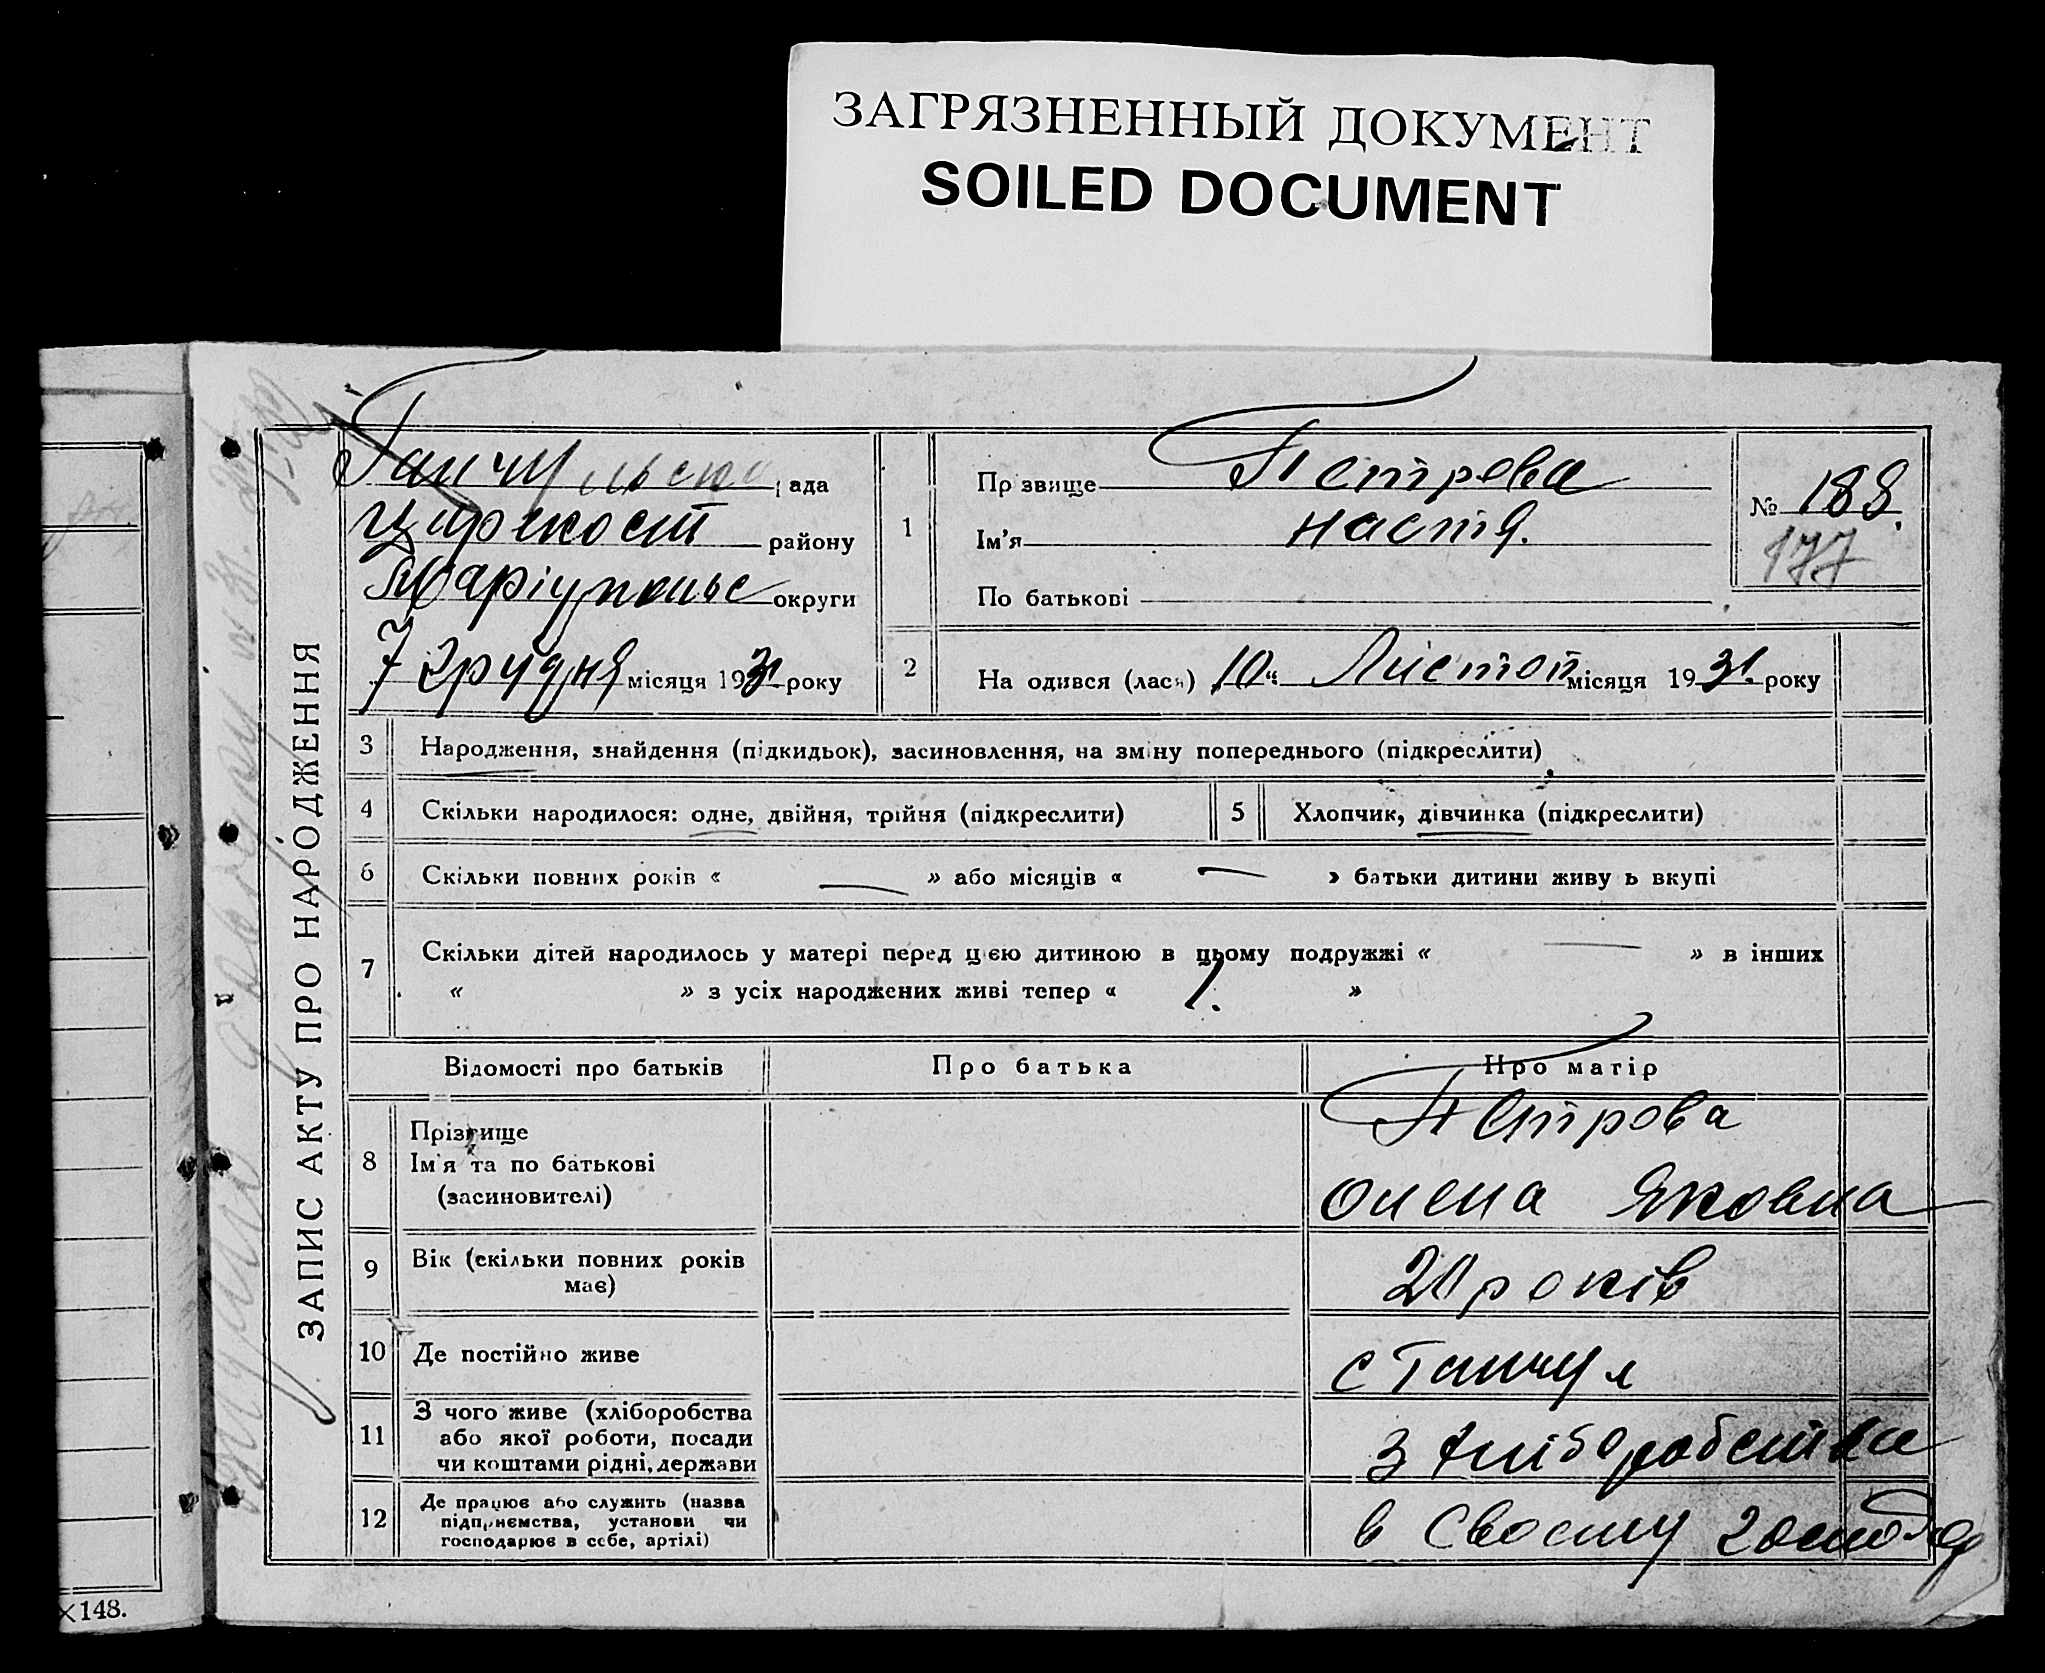 ЗАГРЯЗНЕННЫЙ ДОКУМЕНТ
SOILED DOCUMENT
ЗАПИС АКТУ ПРО НАРОДЖЕННЯ
рада
району
Маріупольс округи
7 грудня місяця 1931 року
1
Прізвище Петрова
Ім'я Настя.
По батькові
№ 188.
177
2
Народився (лася) „10“ Листоп місяця 1931. року
3 Народження, знайдення (підкидьок), засиновлення, на зміну попереднього (підкреслити)
4 Скільки народилося: одне, двійня, трійня (підкреслити)
5 Хлопчик, дівчинка (підкреслити)
6 Скільки повних років « — » або місяців « — » батьки дитини живуть вкупі
7 Скільки дітей народилось у матері перед цією дитиною в цьому подружжі « — » в інших
« » з усіх народжених живі тепер « 1. »
Відомості про батьків Про батька Про матір
8 Прізвище
Ім'я та по батькові
(засиновителі)
Петрова
Олена Яковна
9 Вік (скільки повних років
має)
21 років
10 Де постійно живе
с Ганчул
11 З чого живе (хліборобства
або якої роботи, посади
чи коштами рідні, держави
з хліборобства
12 Де працює або служить (назва
підприємства, установи чи
господарює в себе, артілі)
в своєму господ
×148.